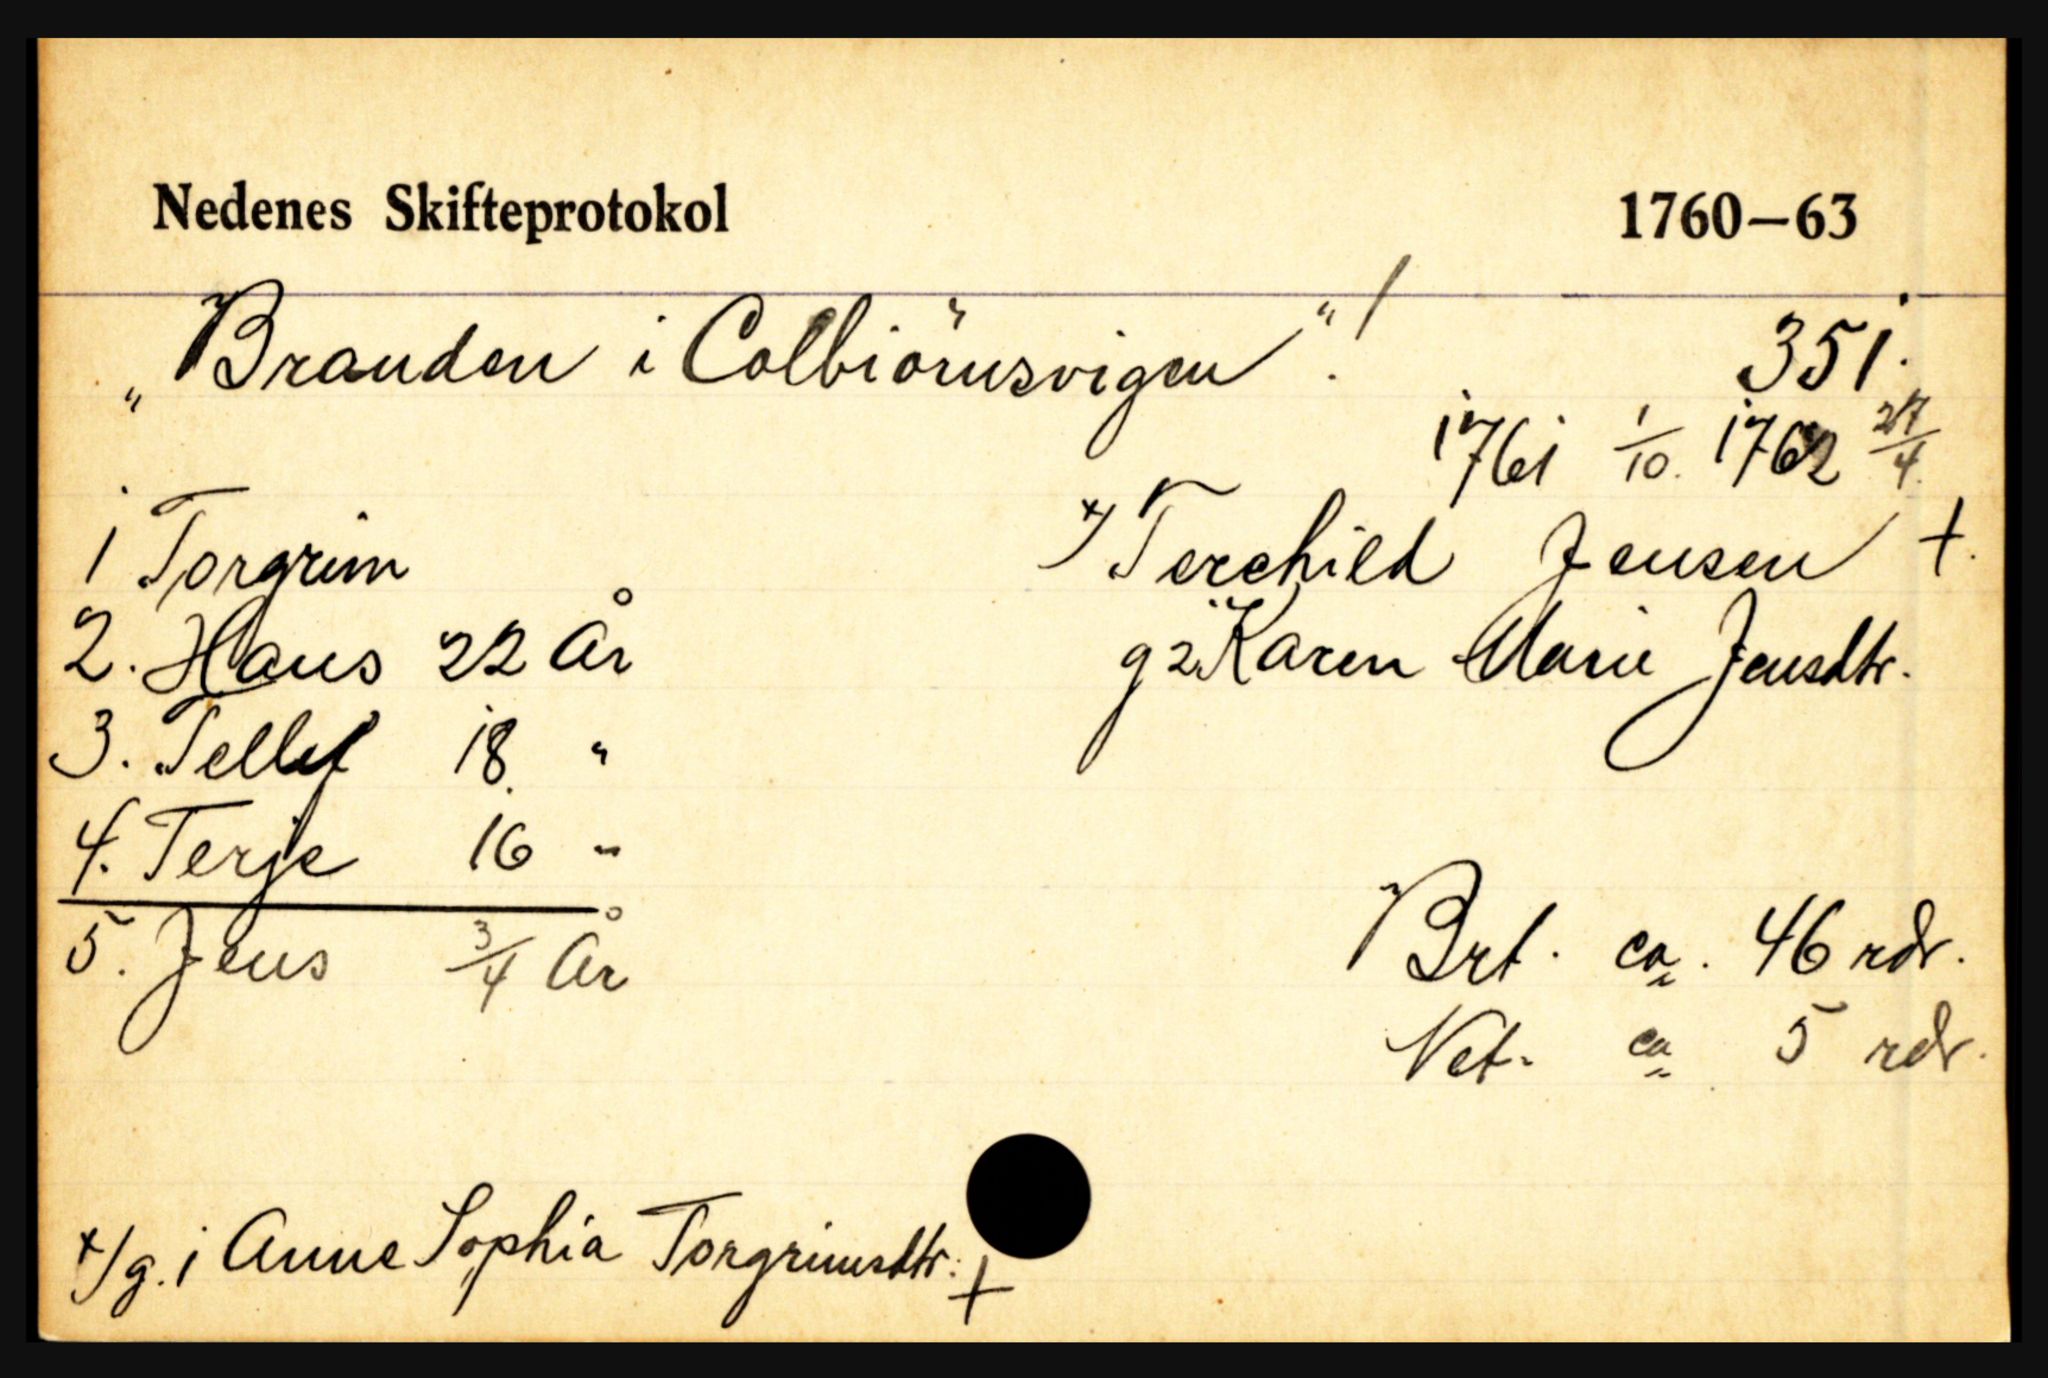 Nedenes Skifteprotokol 1760–63
„Branden i Colbiörnsvigen“!
351.
1761 1/10. 1762 27/4.
x/ Terchild Jensen +.
g 2. Karen Marie Jensdtr.
1 Torgrim
2. Hans 22 År
3. Tellef 18. "
4. Terje 16 "
5. Jens 3/4 År
Brt. ca. 46 rdr.
Net. ca 5 rdr.
x/ g. 1 Anne Sophia Torgrimsdtr. +